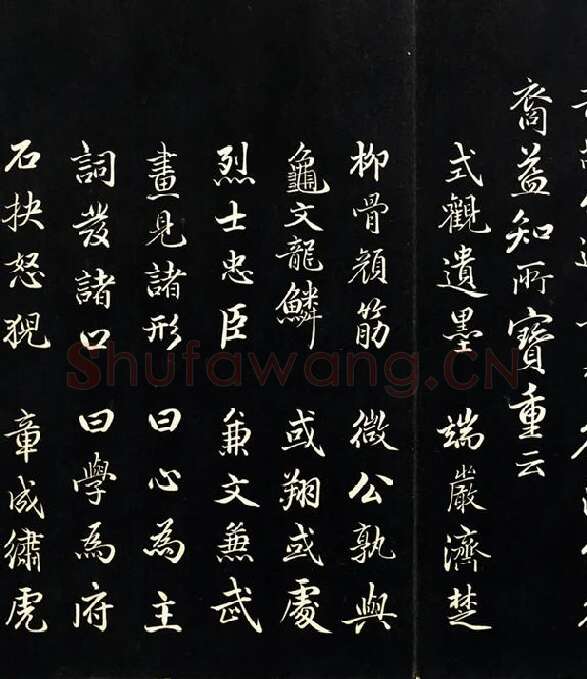 裔益知所寶重云
式觀遺墨 端嚴濟楚
柳骨顏筋 微公孰與
龜文龍鱗 或翔或處
烈士忠臣 兼文兼武
畫見諸形 曰心為主
詞發諸口 曰學為府
石抉怒猊 章成繡虎
Shufawang.CN